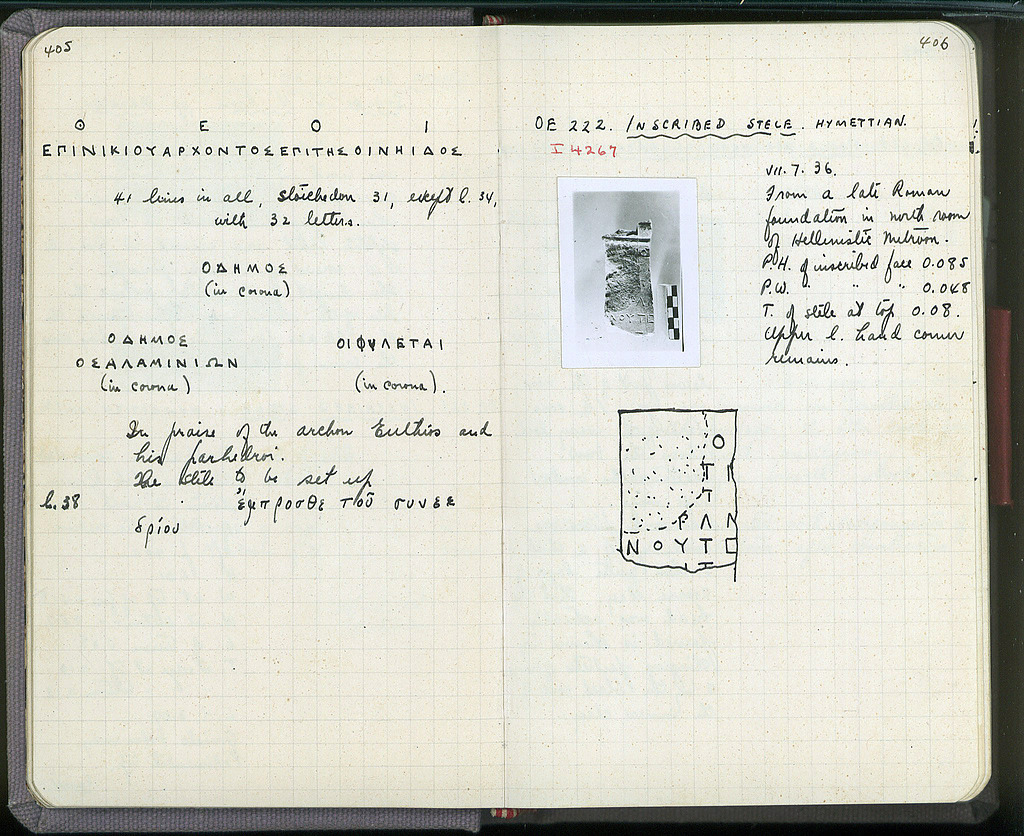 405
Θ Ε Ο Ι
ΕΠΙΝΙΚΙΟΥΑΡΧΟΝΤΟΣΕΠΙΤΗΣΟΙΝΗΙΔΟΣ
41 lines in all, stoichedon 31, except l. 34,
with 32 letters.
ΟΔΗΜΟΣ
(in corona)
ΟΔΗΜΟΣ
ΟΣΑΛΑΜΙΝΙΩΝ
(in corona)
ΟΙΦΥΛΕΤΑΙ
(in corona).
In praise of the archon Euthios and
his parhedroi.
The stele to be set up
l. 38 ἔμπροσθε τοῦ συνεε
δρίου
406
ΟΕ 222. INSCRIBED STELE. HYMETTIAN.
I 4267
VII. 7. 36.
From a late Roman
foundation in north room
of Hellenistic Metroon.
P.H. of inscribed face 0.085
P.W. " " " 0.048
T. of stele at top 0.08.
Upper l. hand corner
remains.
ΝΟΥΤ
Ο
Τ Ι
Τ
Ρ Λ Λ
Ν Ο Υ Τ Ε